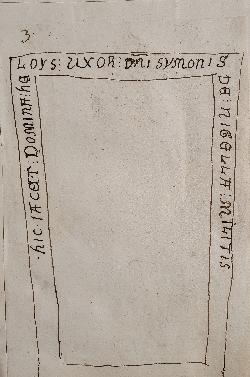 3
hIC: IACET: DOMINA: hE
LOYS: UXOR: DNI SYMONIS
DE: NIGELLA: MILITIS